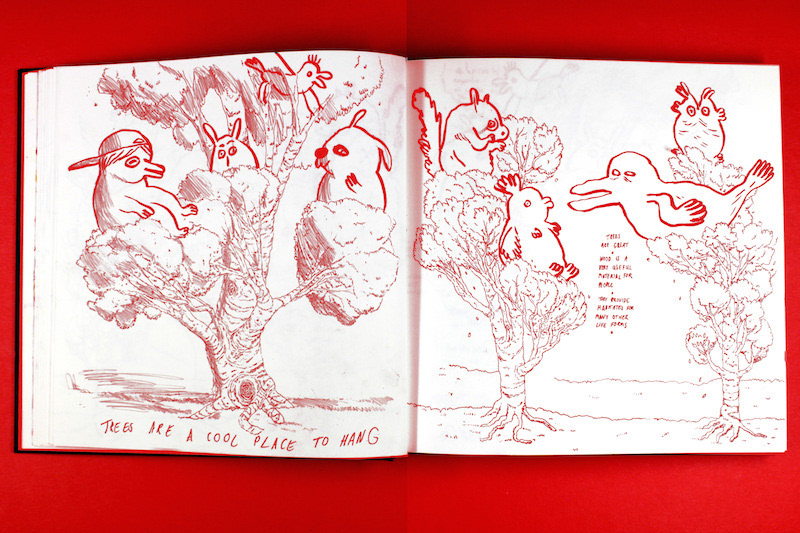 TREES ARE A COOL PLACE TO HANG
TREES
ARE GREAT
WOOD IS A
VERY USEFUL
MATERIAL FOR
PEOPLE
THEY PROVIDE
HABITATS FOR
MANY OTHER
LIFE FORMS